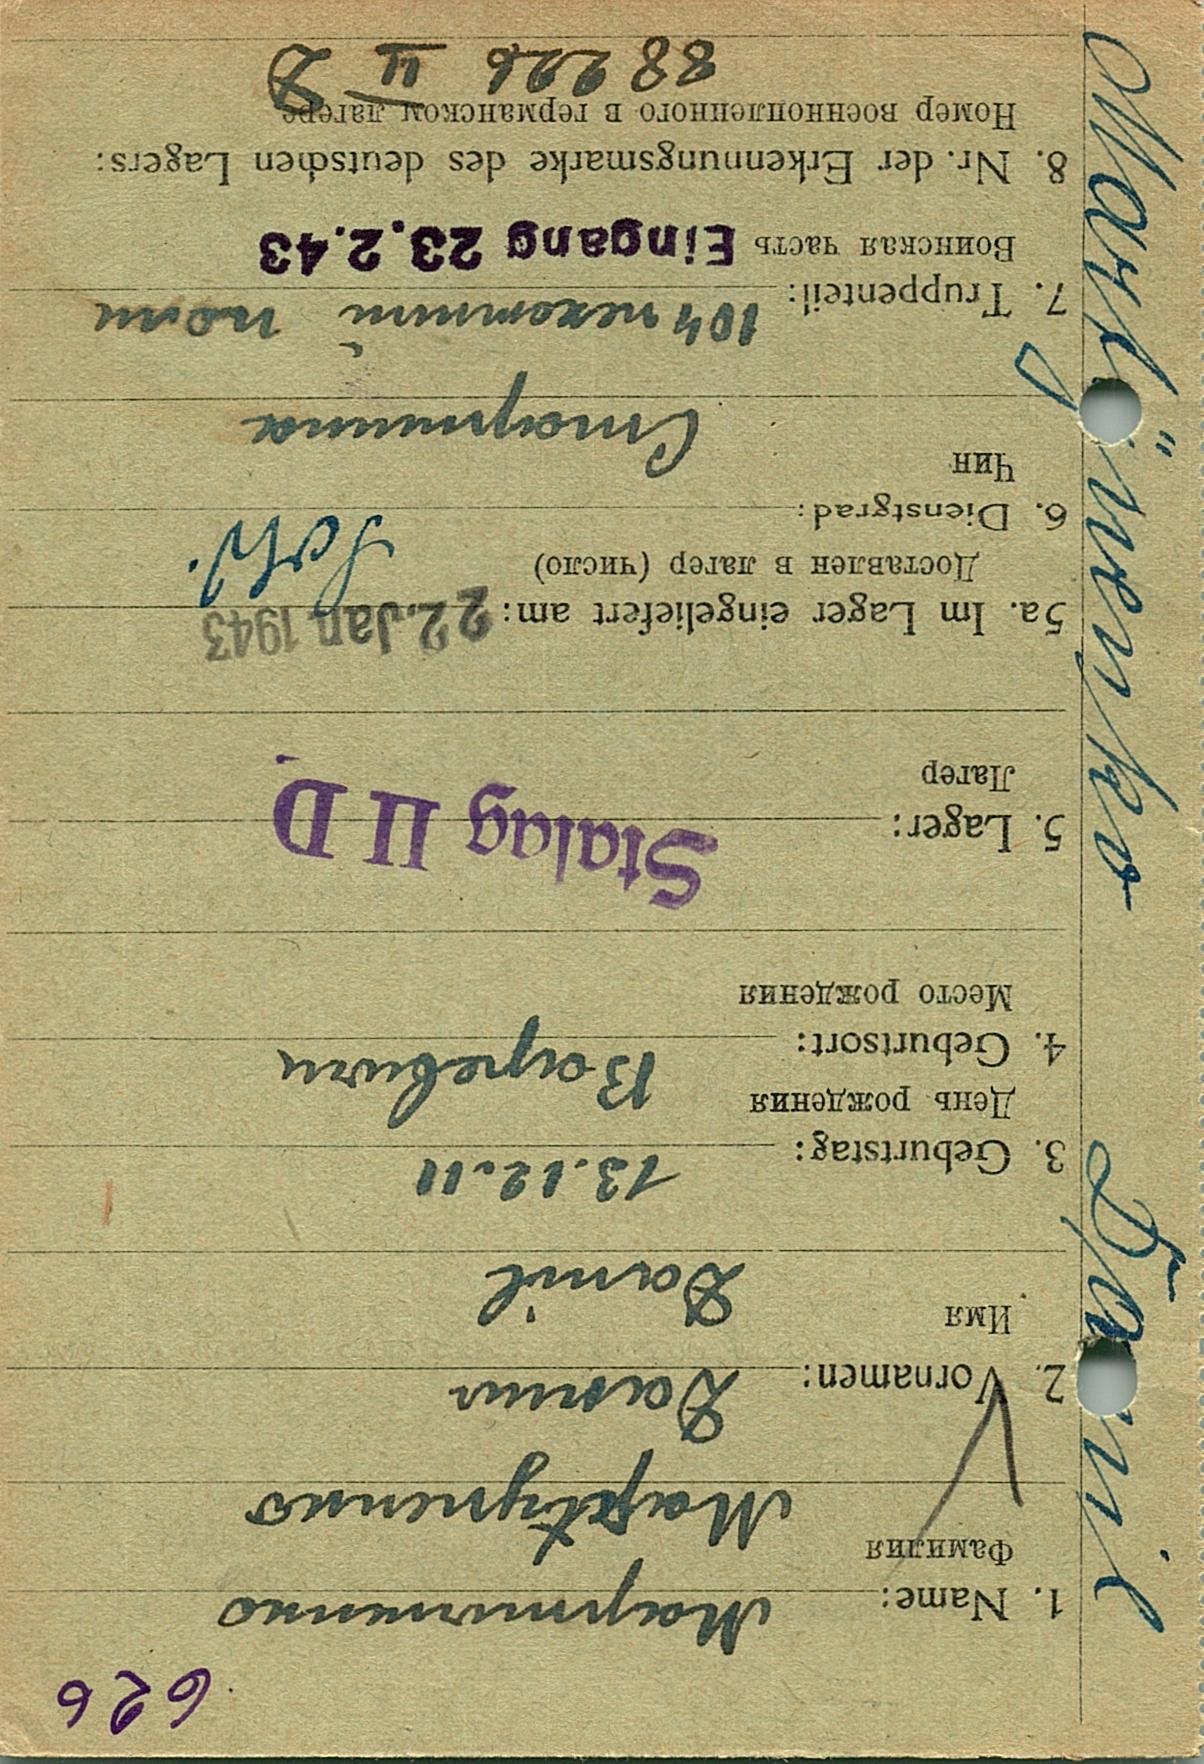 626
1. Name: Мартиненко
Фамилия Martynenko
2. Vornamen: Данил
Имя Danil
3. Geburtstag: 13.12.11
День рождения
4. Geburtsort:
Место рождения
5. Lager: Stalag II D
Лагер
5a. Im Lager eingeliefert am: 22. Jan 1943
Доставлен в лагер (число)
6. Dienstgrad: Sold.
Чин Старшина
7. Truppenteil: 104 пехотни полк
Воинская часть Eingang 23.2.43
8. Nr. der Erkennungsmarke des deutschen Lagers:
Номер военнопленного в германском лагере
88226 II D
Martÿnenko Danil